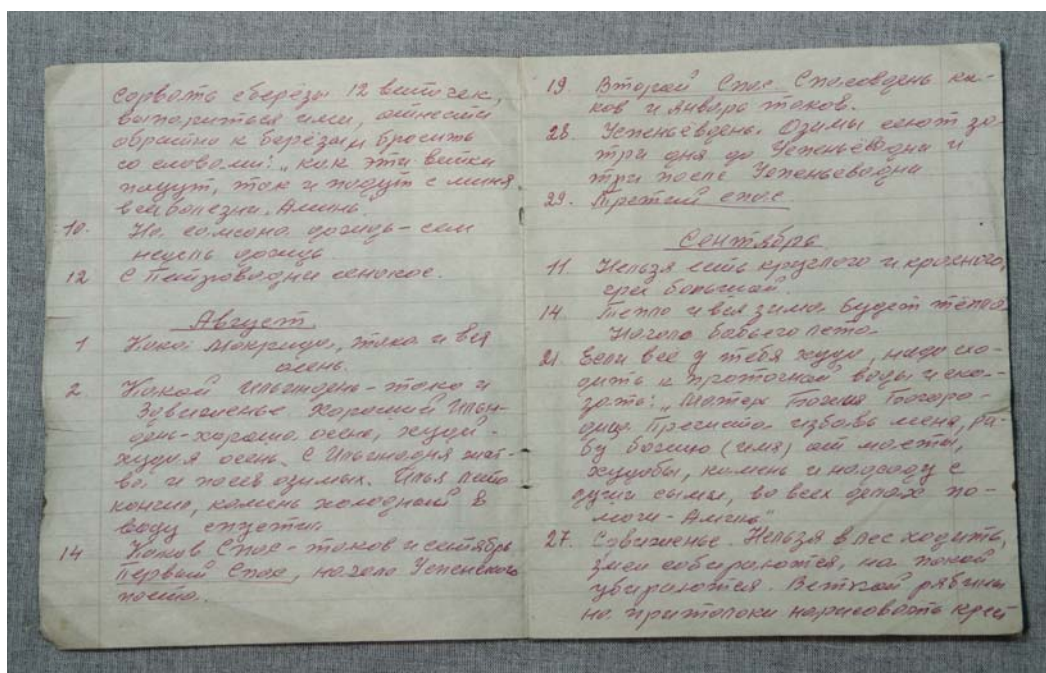 сорвать с берёзы 12 веточек,
выпариться ими, отнести
обратно к берёзам, бросить
со словами: „как эти ветки
падут, так и падут с миня
вси болезни. Аминь.
10. На самсона дождь - сем
недель дождь
12 С Петровадни сенокос.
Август
1 Кака Мокрида, така и вся
осень.
2. Какой Ильиндень - тако и
Здвиженье. Хороший Ильин-
день - хороша осень, худой -
худая осень. С Ильинадня жат-
ва и посев озимых. Илья лето
кончил, камень холодный в
воду спустил.
14 Каков Спас - таков и сентябрь
Первый Спас, начало Успенского
поста.
19 Второй Спас Спасовдень ка-
ков и январь таков.
28. Успеньёвдень. Озимы сеют за
три дня до Успеньевадни и
три после Успеньевадни
29. Третий спас.
Сентябрь
11. Нельзя есть круглого и красного,
грех большой.
14 Тепло и вся зима будет тёпла
Начало бабьего лета.
21. Если все у тебя худо, надо схо-
дить к проточной воды и ска-
зать: „Матерь Божия Богоро-
дица Пресвята избавь меня, ра-
бу божию (имя) от маеты,
худобы, камень и надсаду с
души сыми, во всех делах по-
моги - Аминь"
27. Сдвиженье. Нельзя в лес ходить,
змеи собираются, на покой
убираются. Веткой рябины
на притолоки нарисовать крест